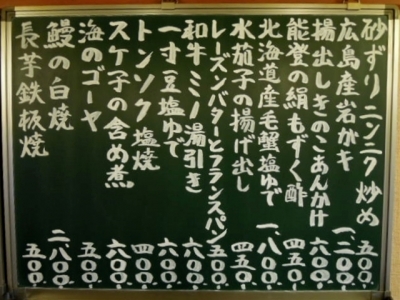 砂ずりニンニク炒め 五〇〇.
広島産岩ガキ 一.二〇〇.
揚出しきのこあんかけ 六〇〇.
能登の絹もずく酢 四五〇.
北海道産毛蟹塩ゆで 一.八〇〇.
水茄子の揚げ出し 四五〇.
レーズンバターとフランスパン 五〇〇.
和牛ミノ湯引き 六〇〇.
一寸豆塩ゆで 六〇〇.
トンソク塩焼 四〇〇.
スケ子の含め煮 六〇〇.
海のゴーヤ 五〇〇.
鰻の白焼 二.八〇〇.
長芋鉄板焼 五〇〇.